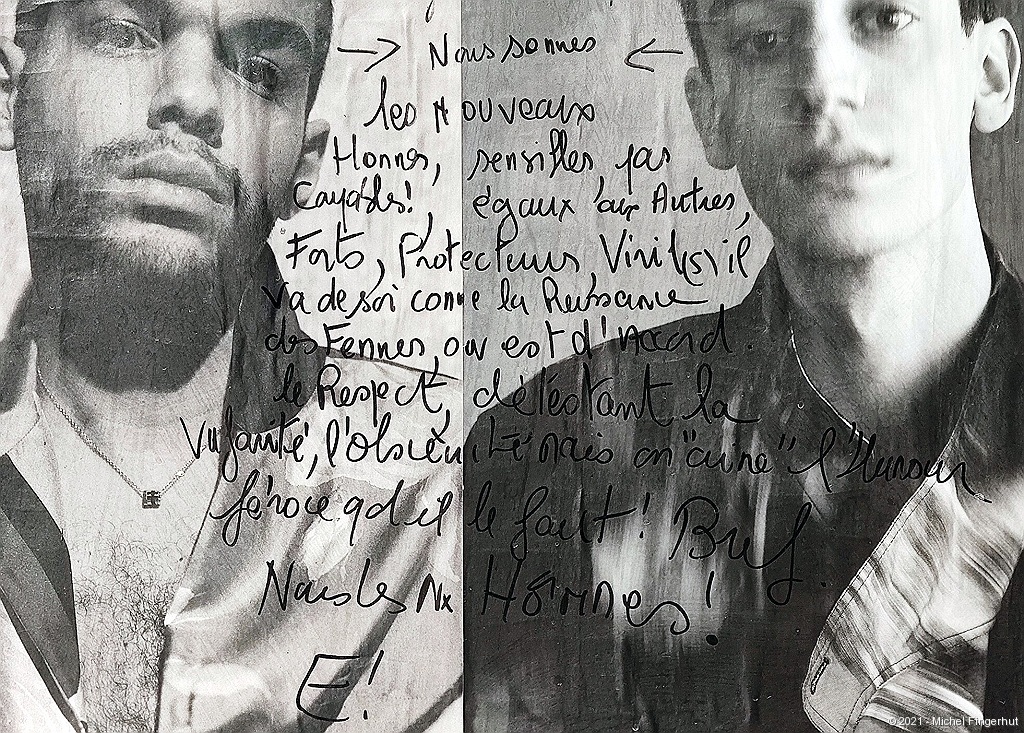 → Nous sommes ←
les Nouveaux
Hommes, sensibles pas
Coupables!, égaux aux Autres,
Forts, Protecteurs, Viril(s) il
va de soi comme la Puissance
des Femmes, on est d'Accord.
le Respect, détestant la
Vulgarité, l'Obscénité mais on "aime" l'Humour
féroce qd il le faut! Bref.
Nous les Nx Hommes!
E!
©2021 - Michel Fingerhut